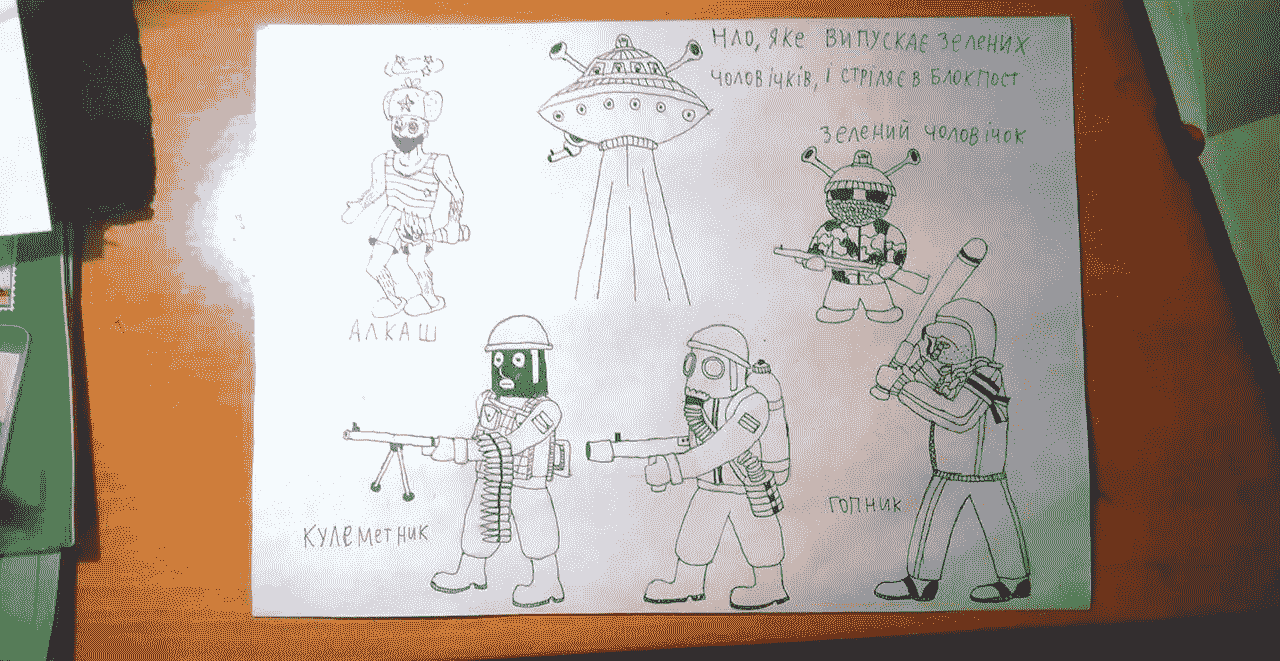 НЛО, ЯКЕ ВИПУСКАЕ ЗЕЛЕНИХ
ЧОЛОВІЧКІВ, І СТРІЛЯЄ В БЛОКПОСТ
ЗЕЛЕНИЙ ЧОЛОВІЧОК
АЛКАШ
ГОПНИК
КУЛЕМЕТНИК